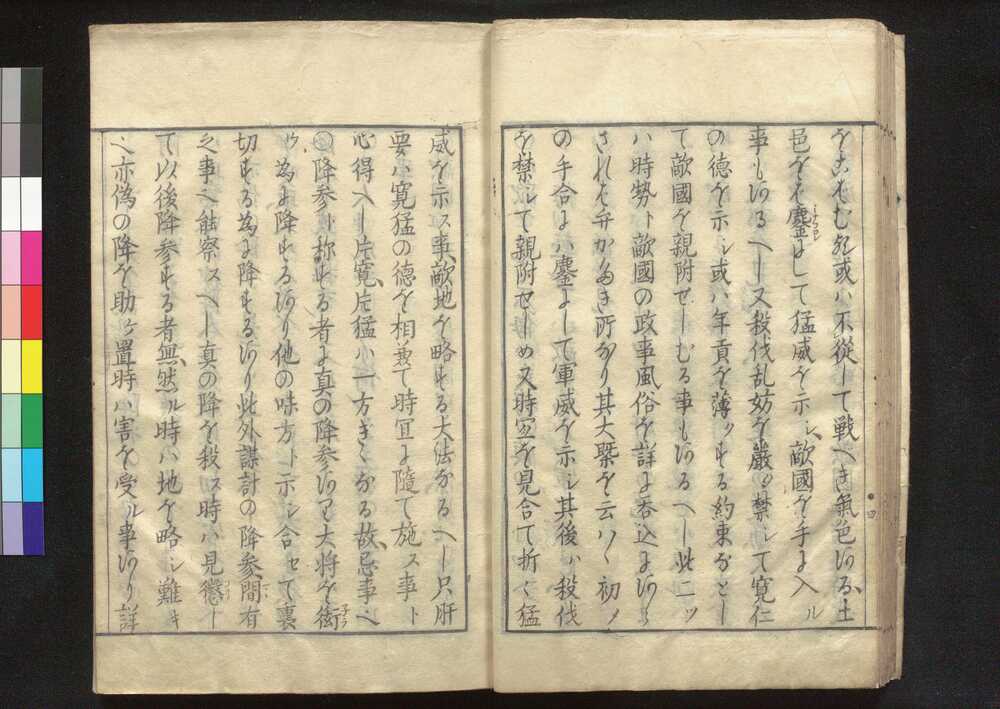 をこばむ処或ハ不従して戦べき氣色ある土
邑をば鏖にして猛威を示し敵國を手に入ル
みなごろし
事もあるべし又殺伐乱妨を嚴ク禁して寛仁
の徳を示し或ハ年貢を薄クする約束などし
て敵國を親附せしむる事もあるべし此二ツ
ハ時勢ト敵國の政事風俗を詳に呑込にあら
されば弁がたき所なり其大槩を云ハヽ初メ
の手合にハ鏖にして軍威を示し其後ハ殺伐
を禁して親附せしめ又時宜を見合て折々猛
威を示ス事敵地を略する大法なるべし只肝
要ハ寛猛の徳を相兼て時宜に隨て施ス事ト
心得べし片寛片猛ハ一方ぎゝなる故忌事也
○降参ト称する者に真の降参あり大将を衛
為に降するあり他の味方ト示し合セて裏
切する為に降するあり此外謀計の降参間有
之事也能察スべし真の降を殺ス時ハ見懲し
て以後降参する者無然ル時ハ地を略し難キ
也亦偽の降を助ケ置時ハ害を受ル事あり詳
四